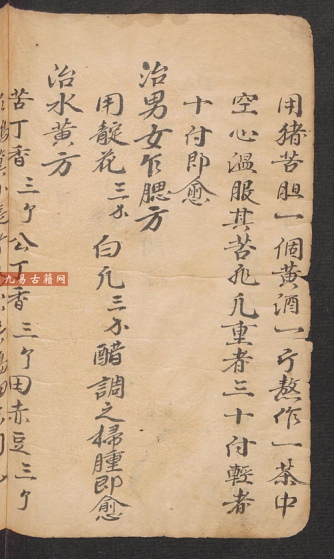 用猪苦胆一個黄酒一斤熬作一茶中
空心温服其苦非凡重者三十付輕者
十付即愈
治男女乍腮方
用靛花三分 白凡三分醋調之掃腫即愈
治水黄方
苦丁香三个公丁香三个田赤豆三个
九易古籍网